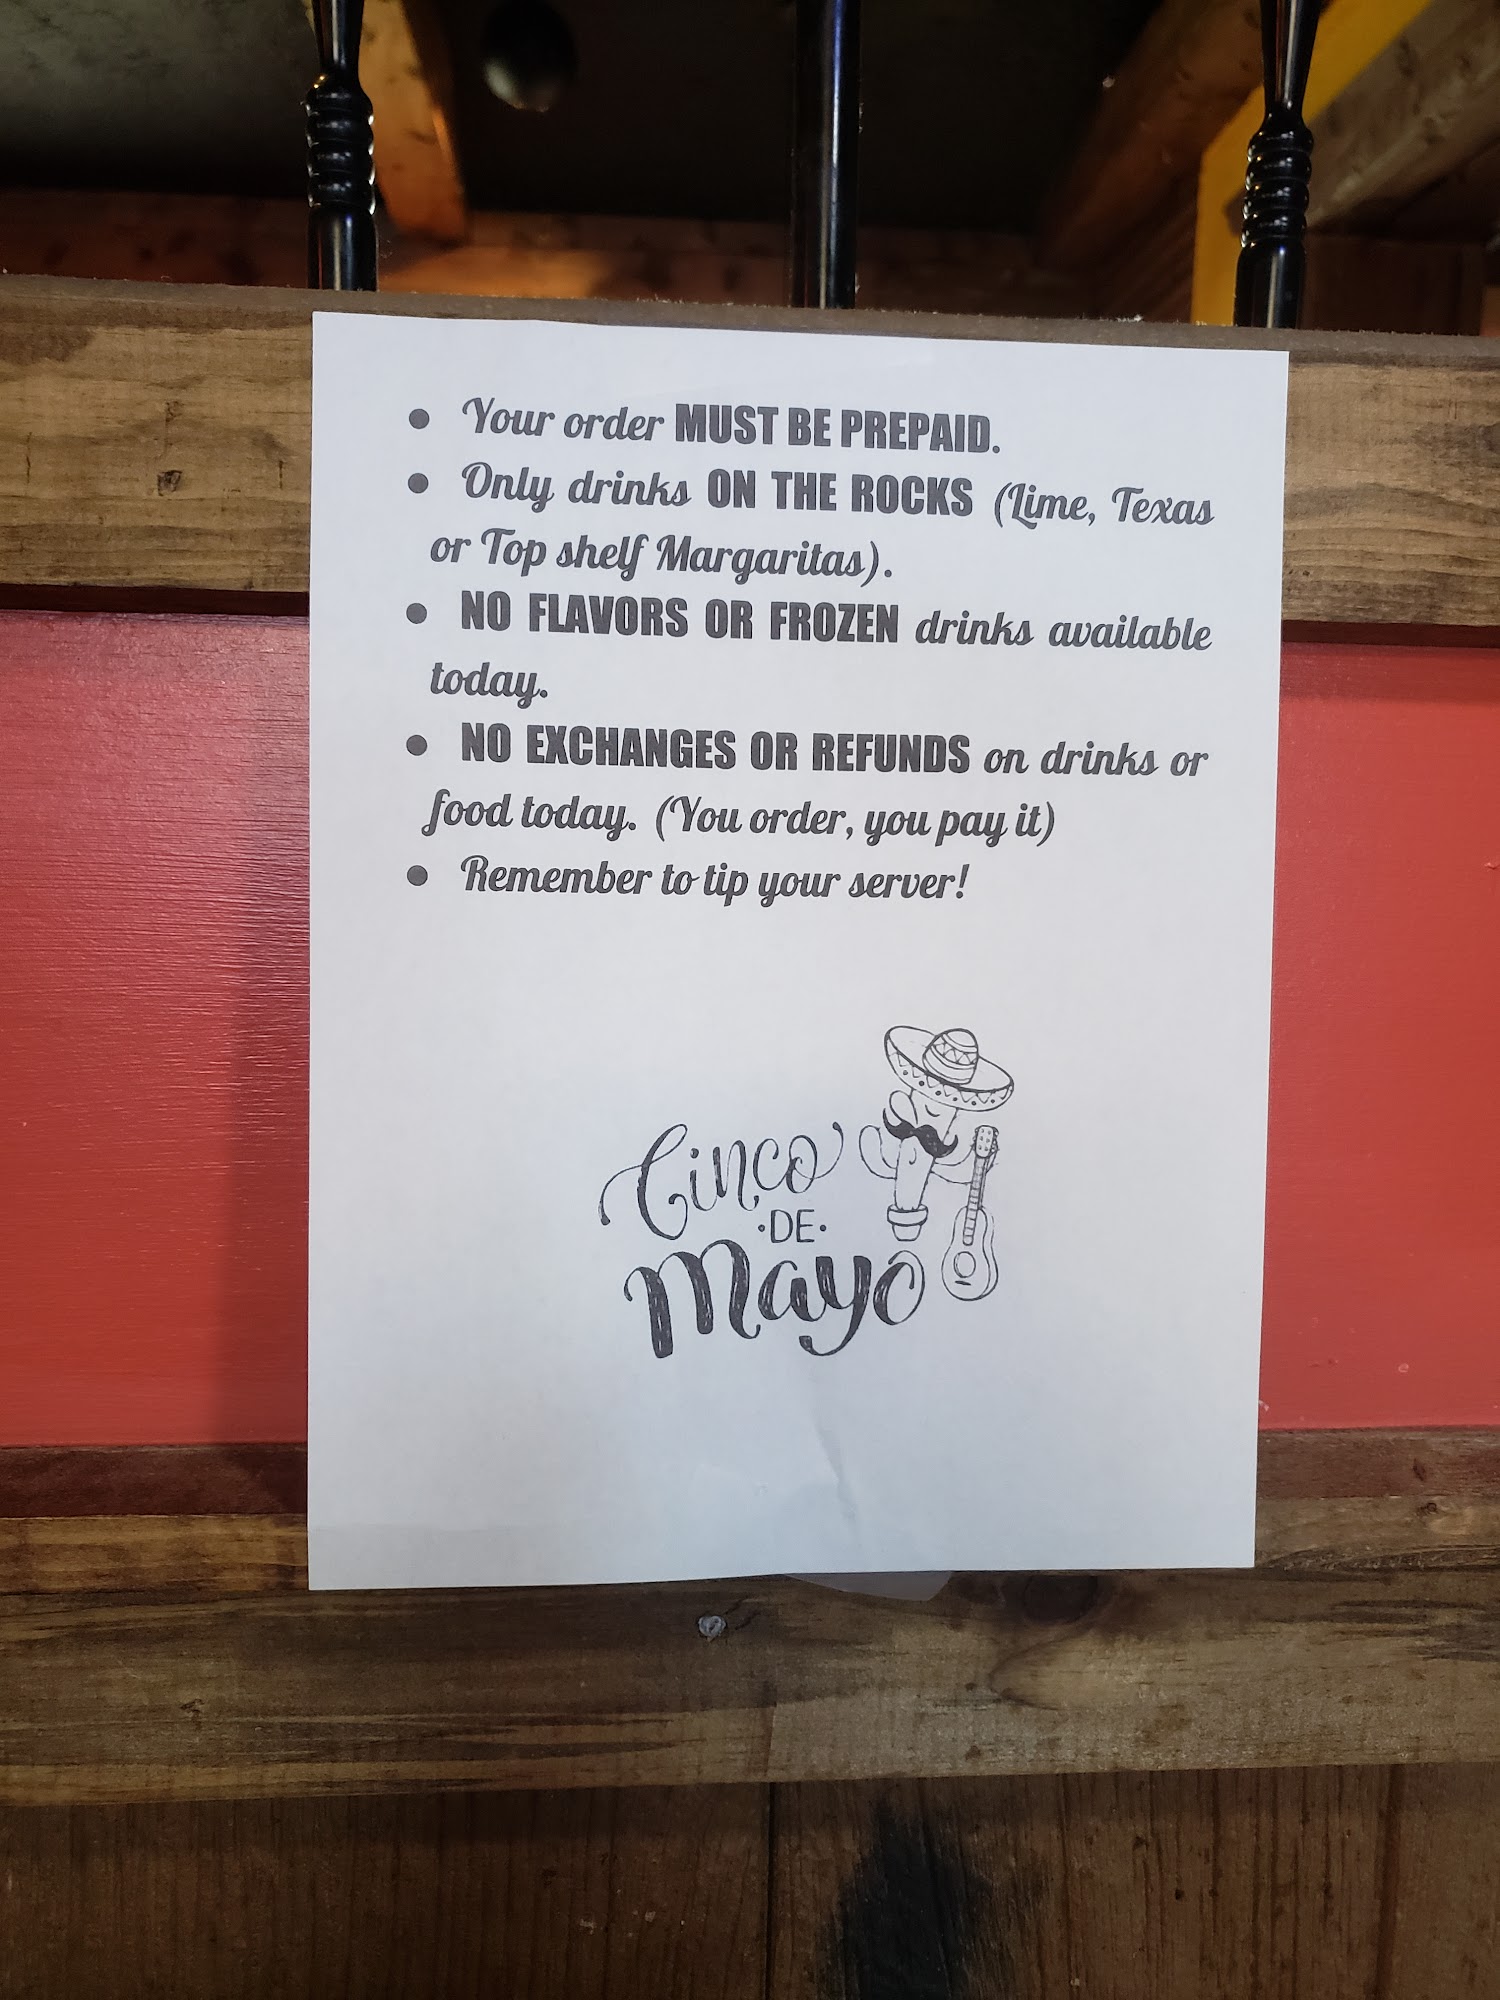 • Your order MUST BE PREPAID.
• Only drinks ON THE ROCKS (Lime, Texas
or Top shelf Margaritas).
• NO FLAVORS OR FROZEN drinks available
today.
• NO EXCHANGES OR REFUNDS on drinks or
food today. (You order, you pay it)
• Remember to tip your server!
Cinco
·DE·
Mayo